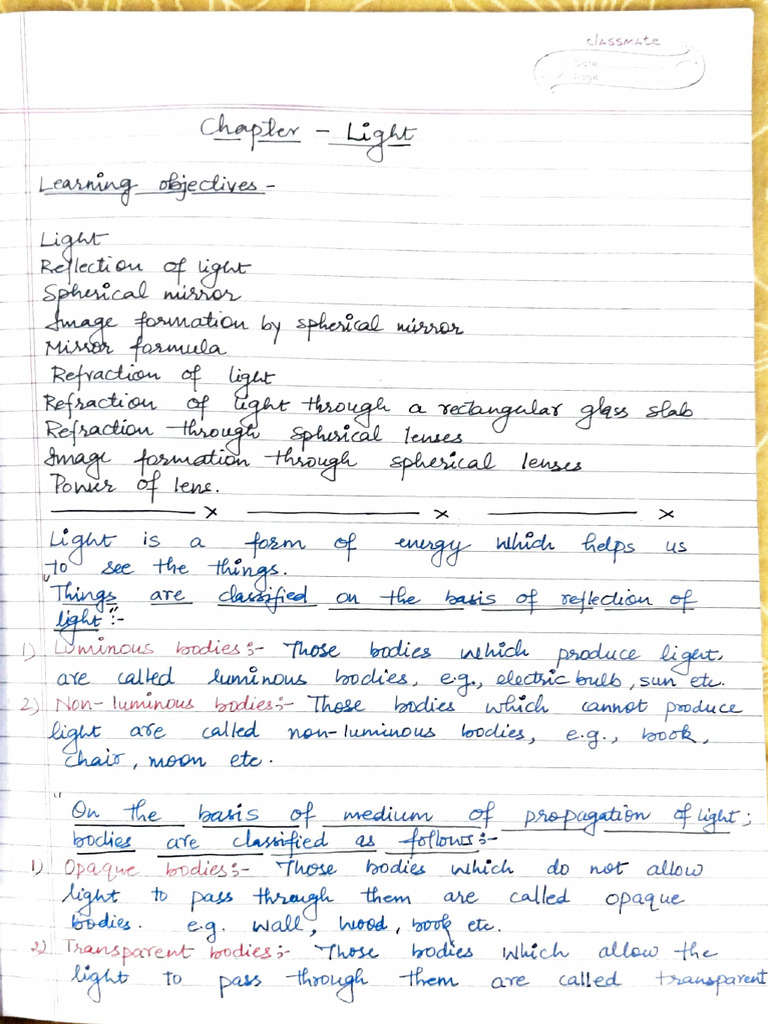 classmate
Date
Page
Chapter - Light
Learning objectives -
Light
Reflection of light
Spherical mirror
Image formation by spherical mirror
Mirror formula
Refraction of light
Refraction of light through a rectangular glass slab
Refraction through spherical lenses
Image formation through spherical lenses
Power of lens.
Light is a form of energy which helps us
to see the things.
"Things are classified on the basis of reflection of
light":-
1) Luminous bodies:- Those bodies which produce light,
are called luminous bodies, e.g., electric bulb, sun etc.
2) Non-luminous bodies:- Those bodies which cannot produce
light are called non-luminous bodies, e.g., book,
chair, moon etc.
"On the basis of medium of propagation of light;
bodies are classified as follows:-
1) Opaque bodies:- Those bodies which do not allow
light to pass through them are called opaque
bodies. e.g. wall, wood, book etc.
2) Transparent bodies:- Those bodies which allow the
light to pass through them are called transparent